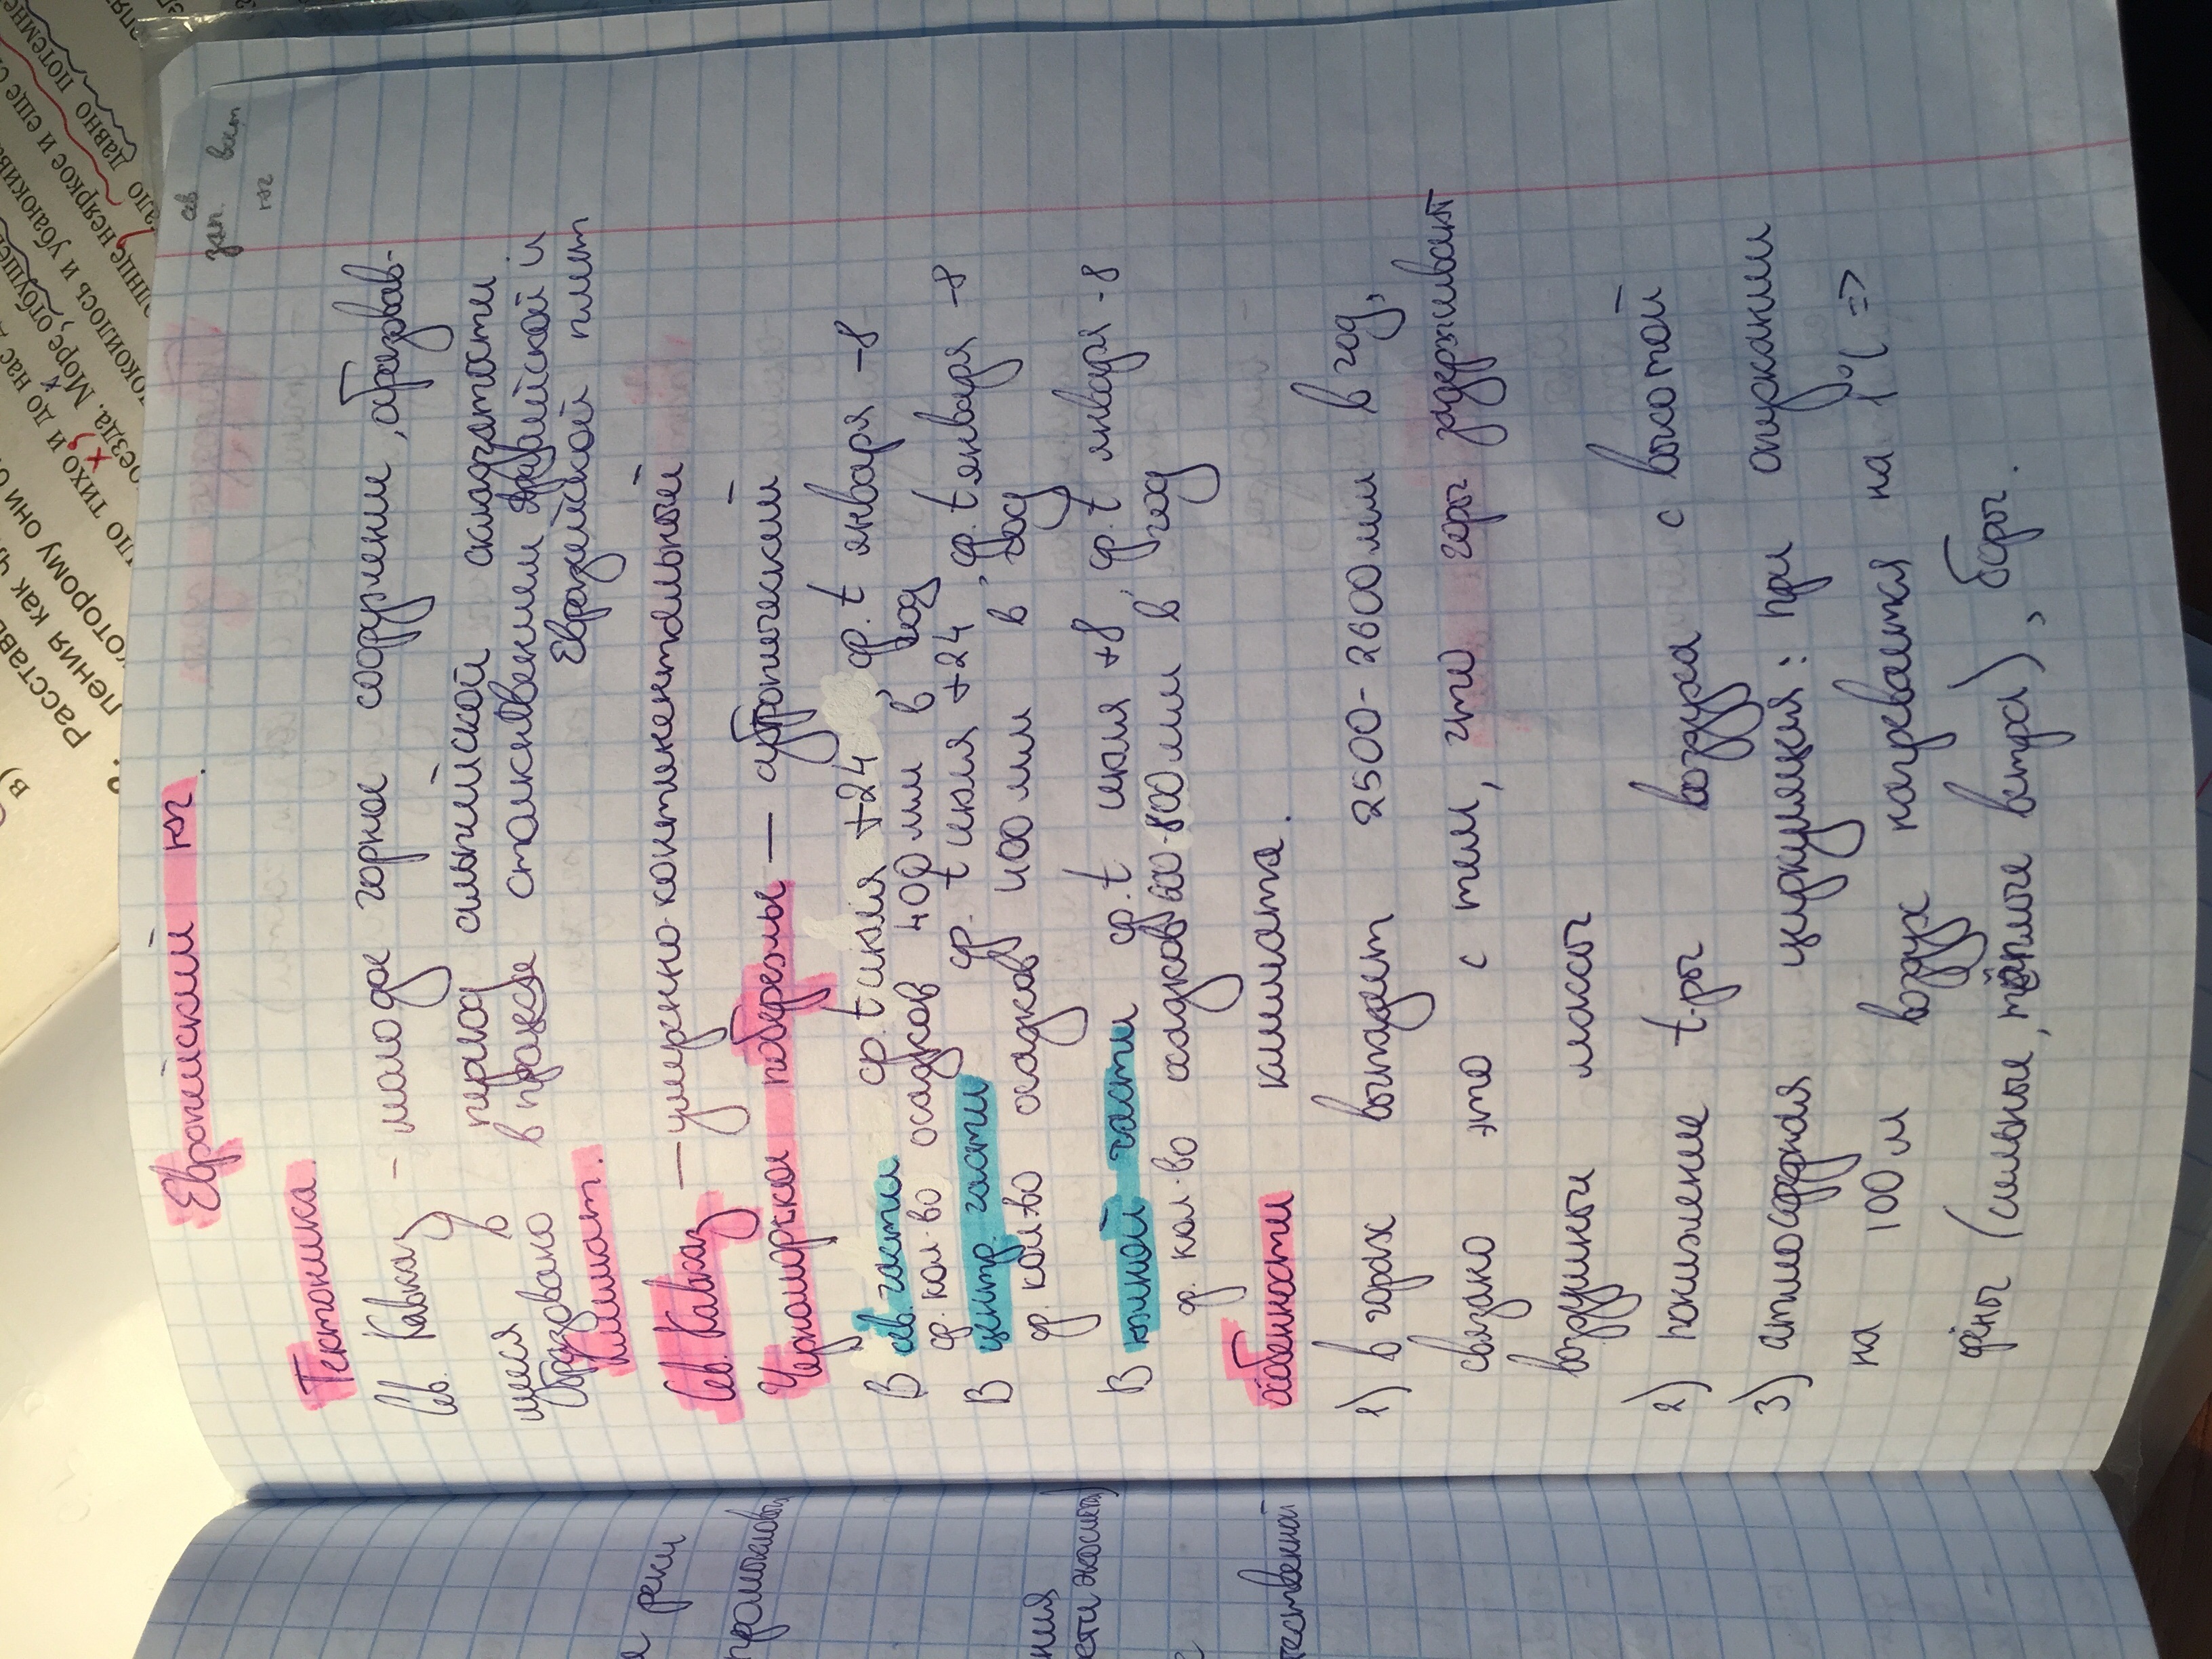 Европейский юг.
Тектоника.
Сев. Кавказ – молодое горное сооружении, образовав-
шееся в период альпийской складчатости
Образовано в процессе столкновении Аравийской и
Евразийской плит
Климат.
Сев. Кавказ — умеренно-континентальный
Черноморское побережье — субтропический
В сев. части ср. t июля +24 ср. t января -8
ср. кол-во осадков 400 мм в год
В центр. части ср. t июля +24, ср. t января -8
ср. кол-во осадков 400 мм в год
В южной части ср. t июля +8, ср. t января -8
ср. кол-во осадков 600-800 мм в год
особенности климата.
1) в горах выпадает 2500-2600 мм в год,
связано это с тем, что горы задерживают
воздушные массы
2) понижение t-ры воздуха с высотой
3) атмосферная циркуляция: при опускании
на 100 м воздух нагревается на 1°C =>
фёны (сильные, тёплые ветра), боры.
сев
зап. вост
юг
реки
ственной
давно потемне
неяркое и еще
окоилось и убаюкива
Море,
ло тихо и до нас
которому они
пения как
Расстав
в)